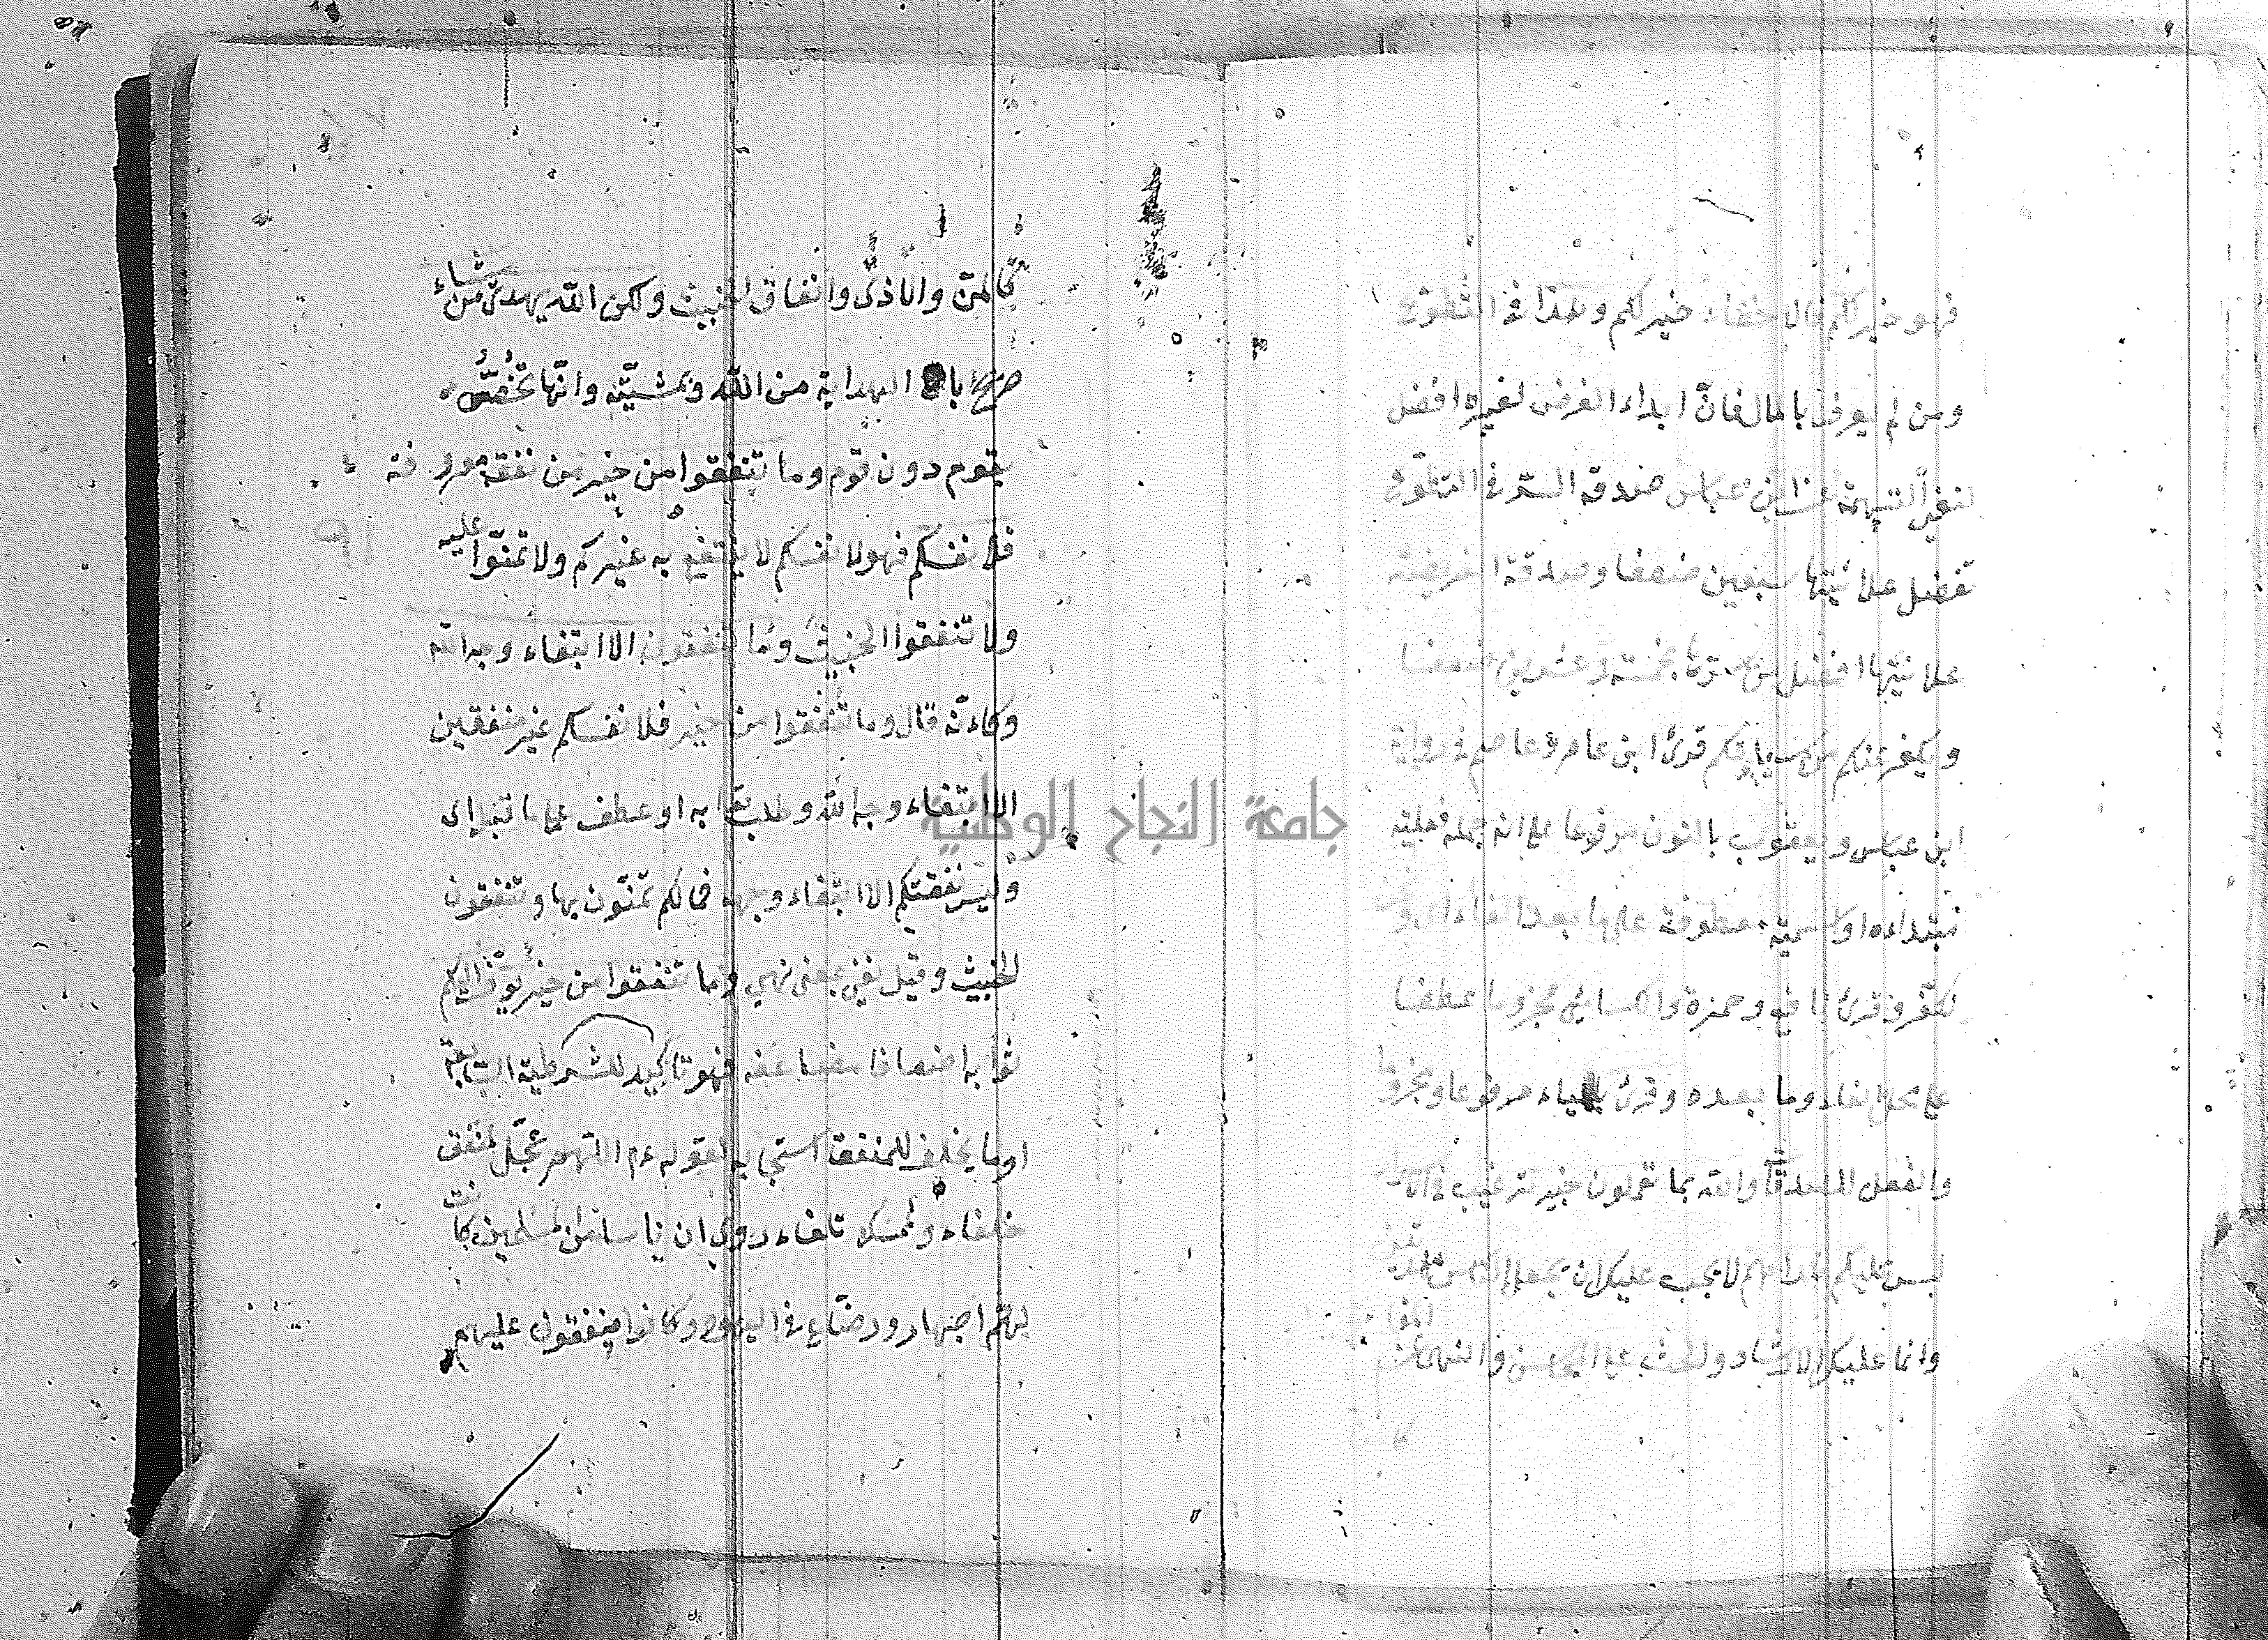 فهو خير لكم فالاخفاء خير لكم وهذا في التطوع
ومن لم يعرف بالمال فان ابداء الفرض لغيره افضل
لنفي التهمة عن ابن عباس صدقة السر في التطوع
تفضل علانيتها سبعين ضعفا وصدقة الفريضة
علانيتها افضل من سرها بخمسة وعشرين ضعفا
ويكفر عنكم من سياتكم قرئ ابن عامر وعاصم في رواية
ابن عباس ويعقوب بالنون مرفوعا على انه جملة فعلية
مبتداءه او اسمية معطوفة على ما بعد الفاء اى
نكفر وقرئ نافع وحمزة والكسائي مجزوما عطفا
على محل الفاء وما بعده وقرئ بالياء مرفوعا ومجزوما
والفعل للصدقات والله بما تعملون خبير ترغيب في
ليس عليكم هداهم لا يجب عليك ان تجعل الناس
وانما عليك الارشاد والحث على المحاسن والنهى عن
كالمن والاذى وانفاق الخبيث ولكن الله يهدى من يشاء
صريح بان الهداية من الله وبمشيته وانها تخص
بقوم دون قوم وما تنفقوا من خير من نفقة معروفة
فلانفسكم فهو لانفسكم لا ينتفع به غيركم ولا تمنوا عليه
ولا تنفقوا الخبيث وما تنفقون الا ابتغاء وجه الله
وكاءنه قال وما تنفقوا من خير فلانفسكم غير منفقين
الا ابتغاء وجه الله وطلب به او عطف على ما قبله اى
وليس نفقتكم الا ابتغاء وجهه فما لكم تمنون بها وتنفقون
الخبيث وقيل نفي بمعنى نهي وما تنفقوا من خير يوف اليكم
ثوابه اضعافا مضاعفه فهو تاكيد للشرطية السابقة
او ما يخلف للمنفق استجابه لقوله عم اللهم عجل لمنفق
خلفاء ولممسك تلفاء روى ان ناسا من المسلمين كانت
لهم اصهار ورضاع في اليهود وكانوا ينفقون عليهم
جامعة النجاح الوطنية